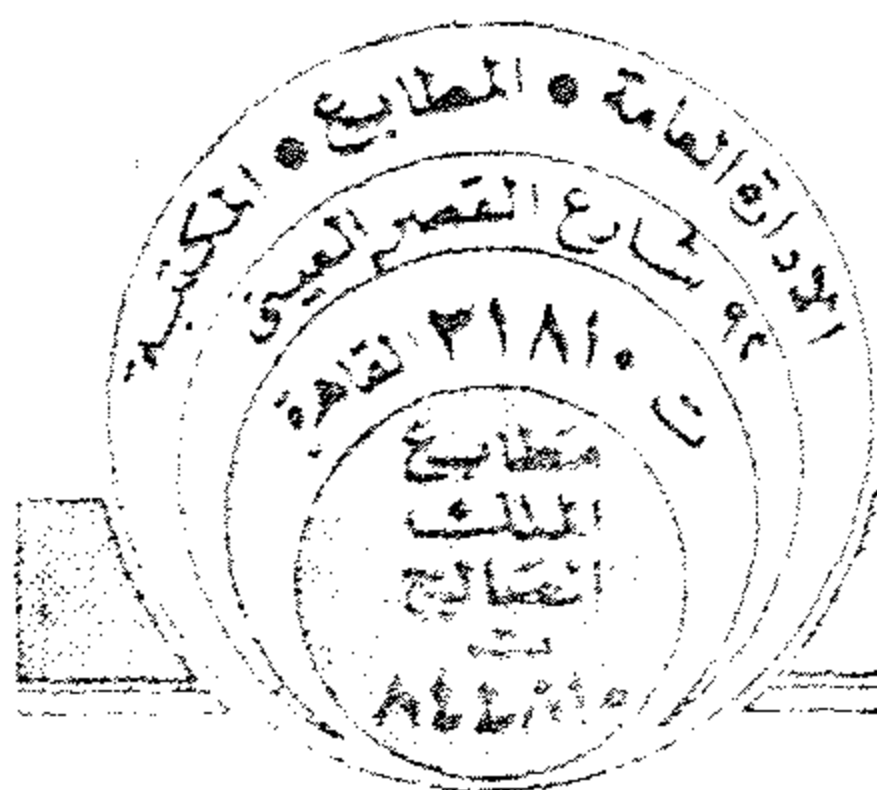 الادارة العامة • المطابع • المكتبة
٩٢ شارع القصر العينى
ت ٣١٨١٠ القاهرة
مطابع
الملك
الصالح
ت